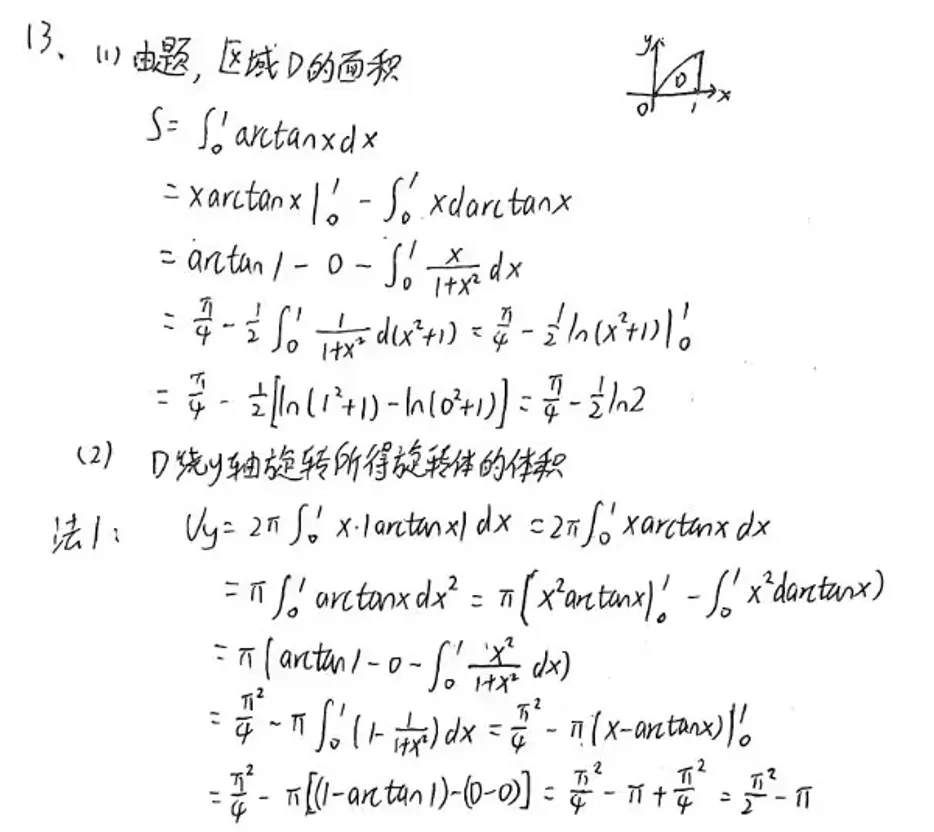 13、(1) 由题, 区域D的面积
y
D
0 1 x
S= ∫₀¹ arctanxdx
= xarctanx|₀¹ - ∫₀¹ xdarctanx
= arctan1 - 0 - ∫₀¹ x/(1+x²) dx
= π/4 - 1/2 ∫₀¹ 1/(1+x²) d(x²+1) = π/4 - 1/2 ln(x²+1)|₀¹
= π/4 - 1/2[ln(1²+1)-ln(0²+1)] = π/4 - 1/2 ln2
(2) D绕y轴旋转所得旋转体的体积
法1: Vy= 2π ∫₀¹ x·|arctanx| dx = 2π∫₀¹ xarctanx dx
= π ∫₀¹ arctanx dx² = π(x²arctanx|₀¹ - ∫₀¹ x²darctanx)
= π(arctan1 - 0 - ∫₀¹ x²/(1+x²) dx)
= π²/4 - π ∫₀¹ (1- 1/(1+x²)) dx = π²/4 - π(x-arctanx)|₀¹
= π²/4 - π[(1-arctan1)-(0-0)] = π²/4 - π + π²/4 = π²/2 - π